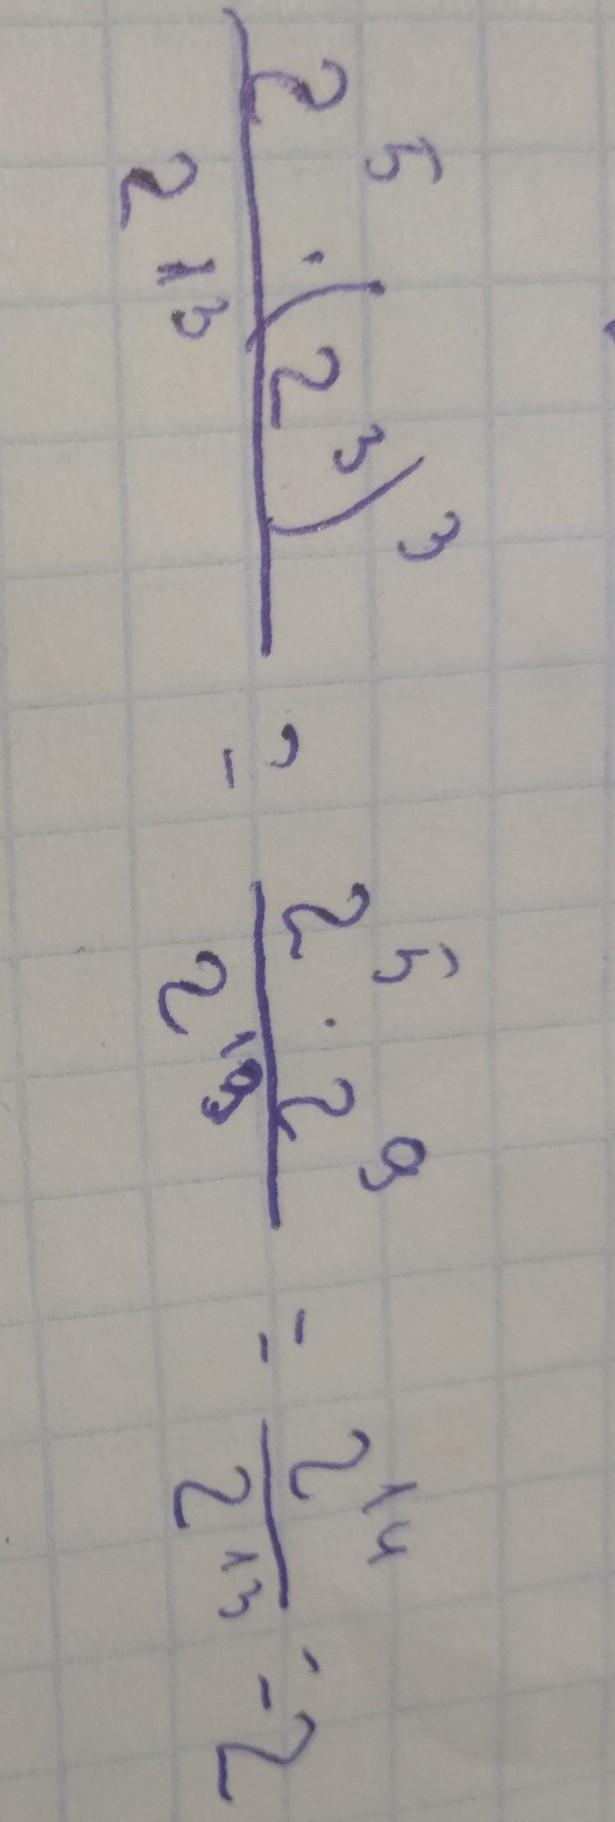 \frac{2^5 \cdot (2^3)^3}{2^{13}} = \frac{2^5 \cdot 2^9}{2^{13}} = \frac{2^{14}}{2^{13}} = 2